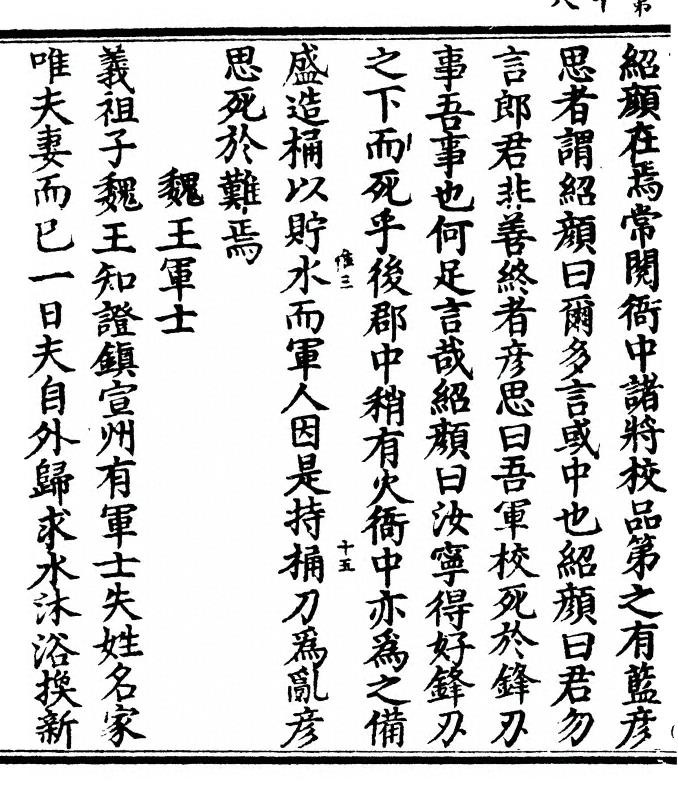 紹顔在焉常閱衙中諸將校品第之有藍彦
思者謂紹顔曰爾多言或中也紹顔曰君勿
言郎君非善終者彦思曰吾軍校死於鋒刃
事吾事也何足言哉紹顔曰汝寧得好鋒刃
之下而死乎後郡中稍有火衙中亦爲之備
盛造桶以貯水而軍人因是持桶刀爲亂彦
思死於難焉
魏王軍士
義祖子魏王知證鎮宣州有軍士失姓名家
唯夫妻而已一日夫自外歸求水沐浴換新
十五